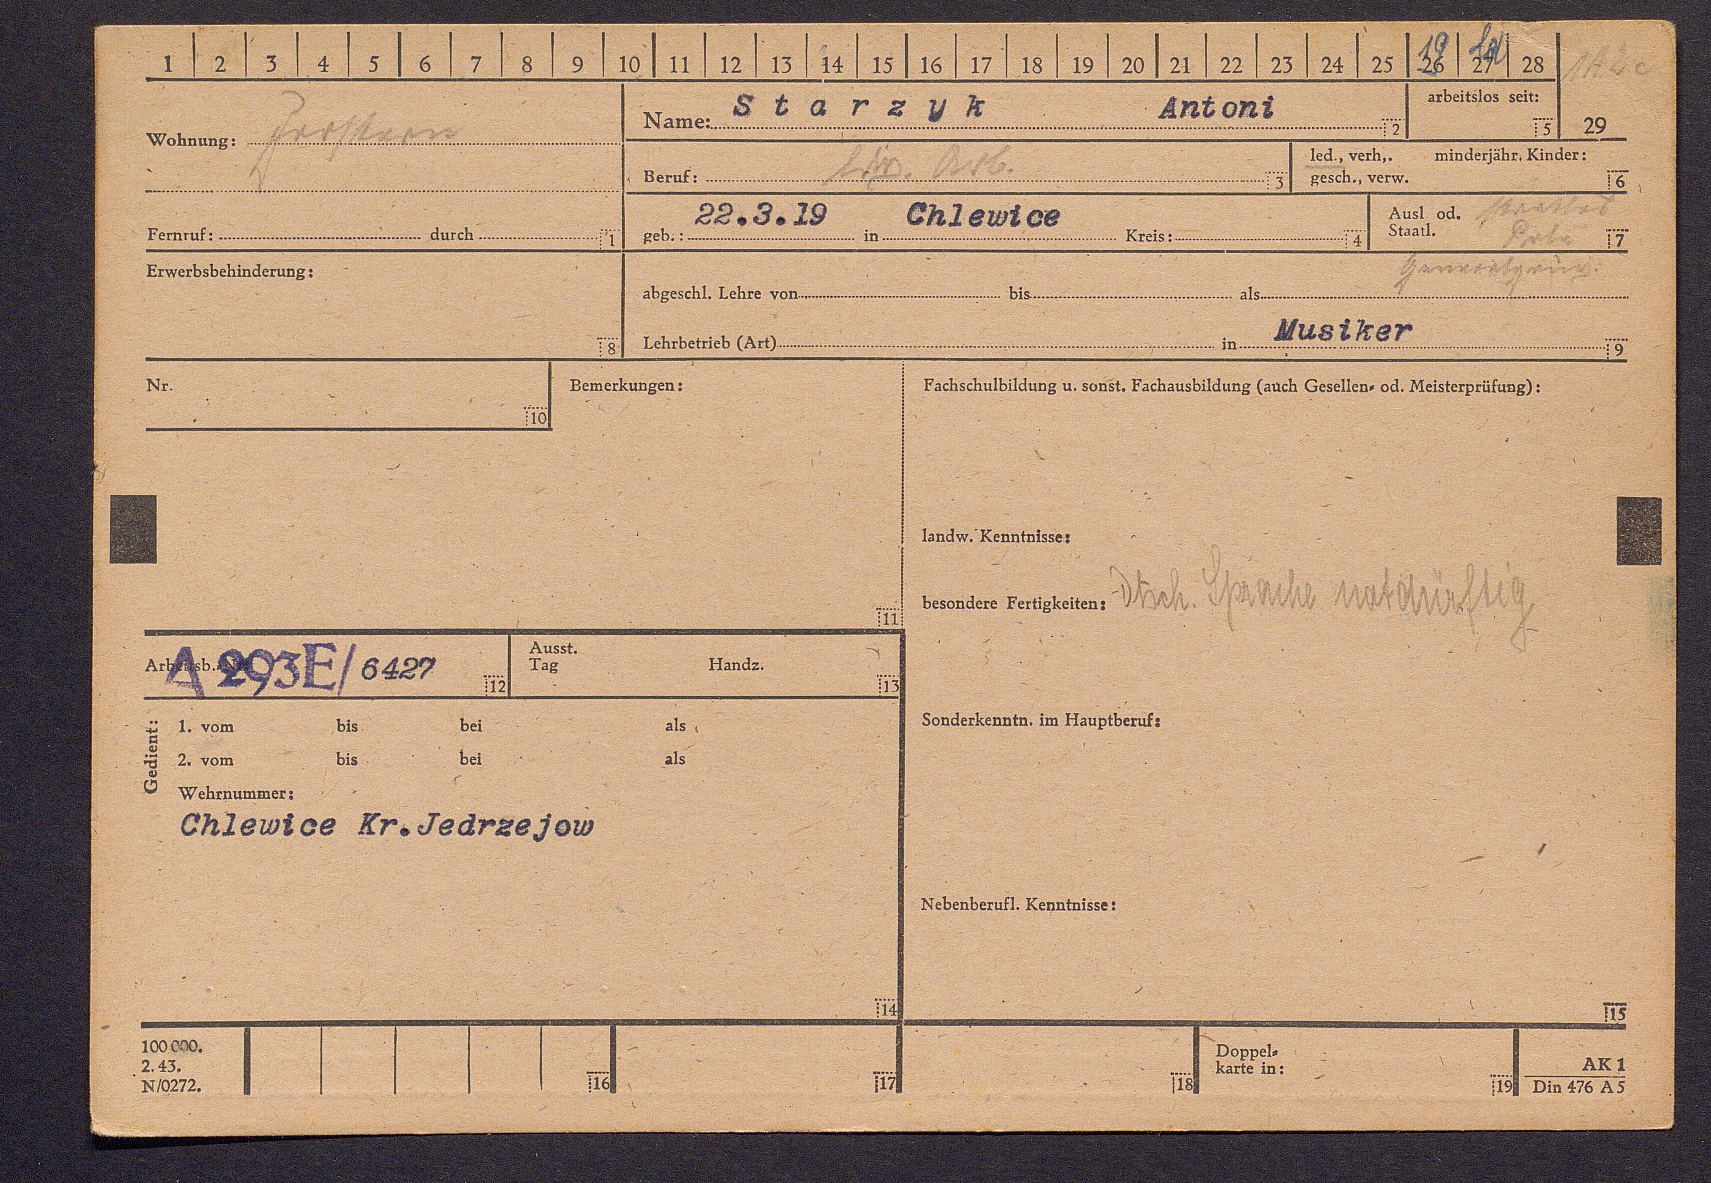 1 2 3 4 5 6 7 8 9 10 11 12 13 14 15 16 17 18 19 20 21 22 23 24 25 26 27 28
19
Name: Starzyk Antoni 2
arbeitslos seit: 5
29
Wohnung:
Beruf: Arb. 3
led., verh,. minderjähr. Kinder:
gesch., verw. 6
Fernruf: durch 1
geb.: 22.3.19 in Chlewice Kreis: 4
Ausl od.
Staatl. 7
Erwerbsbehinderung: 8
abgeschl. Lehre von bis als
Lehrbetrieb (Art) in Musiker 9
Nr. 10
Bemerkungen: 11
Fachschulbildung u. sonst. Fachausbildung (auch Gesellen- od. Meisterprüfung):
landw. Kenntnisse:
besondere Fertigkeiten: Dtsch. Sprache notdürftig
Arbeitsb. Nr. A 293E/6427 12
Ausst.
Tag Handz. 13
Gedient:
1. vom bis bei als
2. vom bis bei als
Wehrnummer:
Chlewice Kr.Jedrzejow
14
Sonderkenntn. im Hauptberuf:
Nebenberufl. Kenntnisse:
15
100 000.
2. 43.
N/0272.
16 17 18
Doppel-
karte in: 19
AK 1
Din 476 A 5